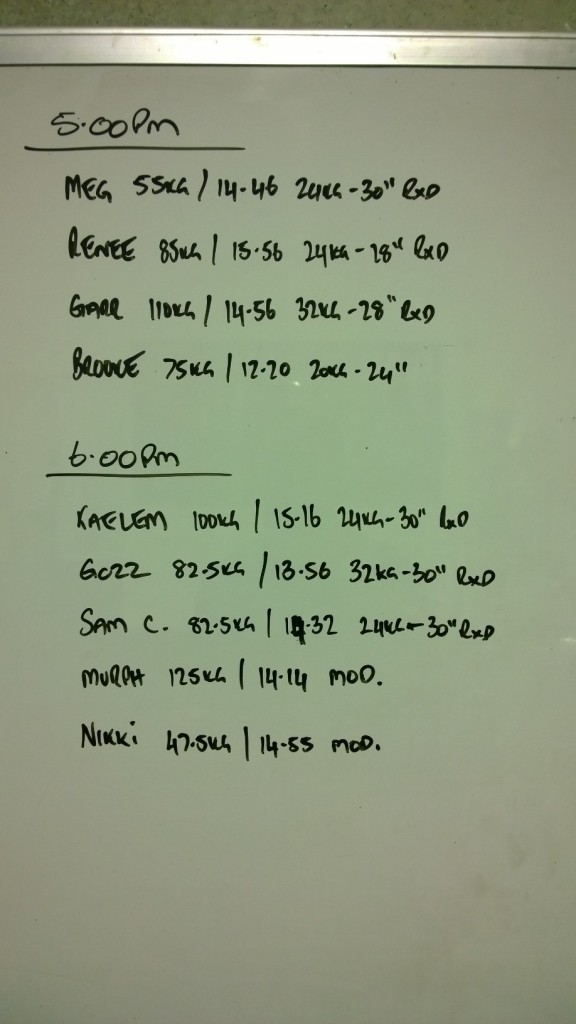 5.00Pm
MEG 55KG / 14-46 24KG-30" RxD
RENEE 85KG | 15.56 24KG-28" RxD
GARR 110KG / 14-56 32KG-28" RxD
BROOKE 75KG | 12-20 20KG-24"
6.00Pm
KAELEM 100KG | 15-16 24KG-30" RxD
GOZZ 82.5KG / 13.56 32KG-30" RxD
SAM C. 82.5KG | 14.32 24KG-30" RxD
MURPH 125KG | 14-14 MOD.
NIKKi 47.5KG | 14-55 MOD.